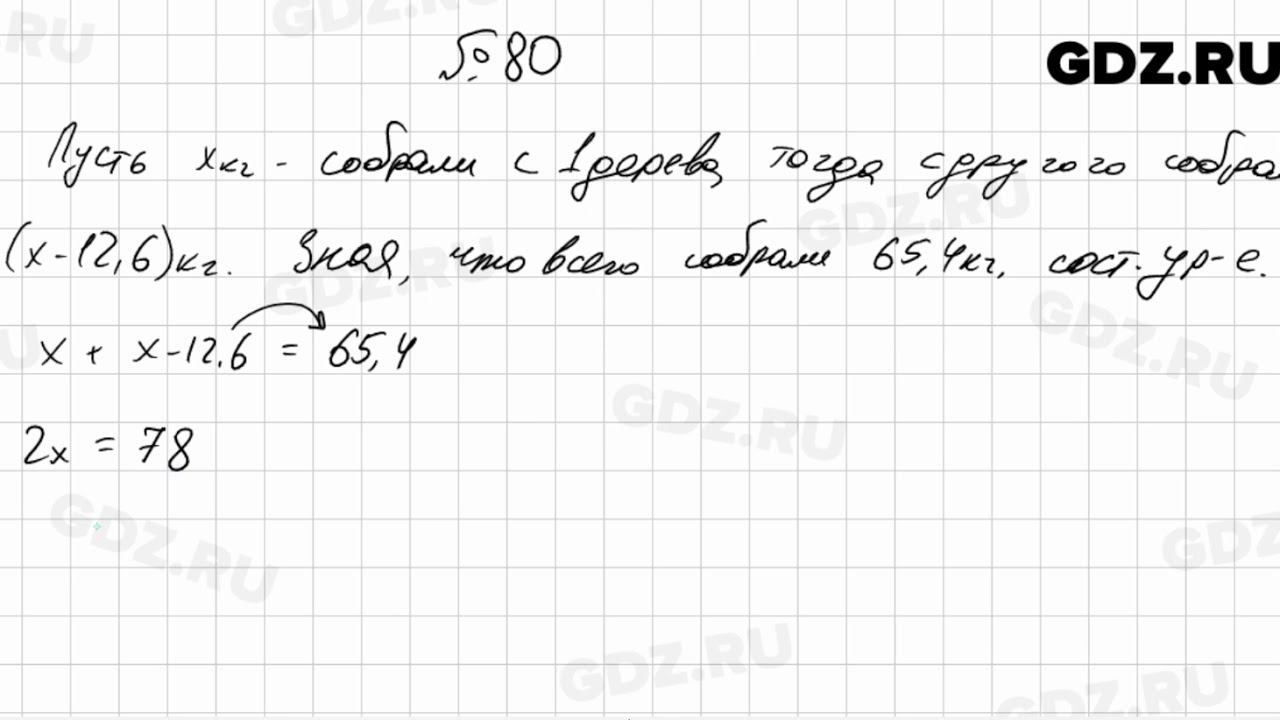 № 80
GDZ.RU
Пусть x кг - собрали с 1 дерева, тогда с другого собра
(x-12,6) кг. Зная, что всего собрали 65,4 кг, сост. ур-е.
x + x-12,6 = 65,4
2x = 78